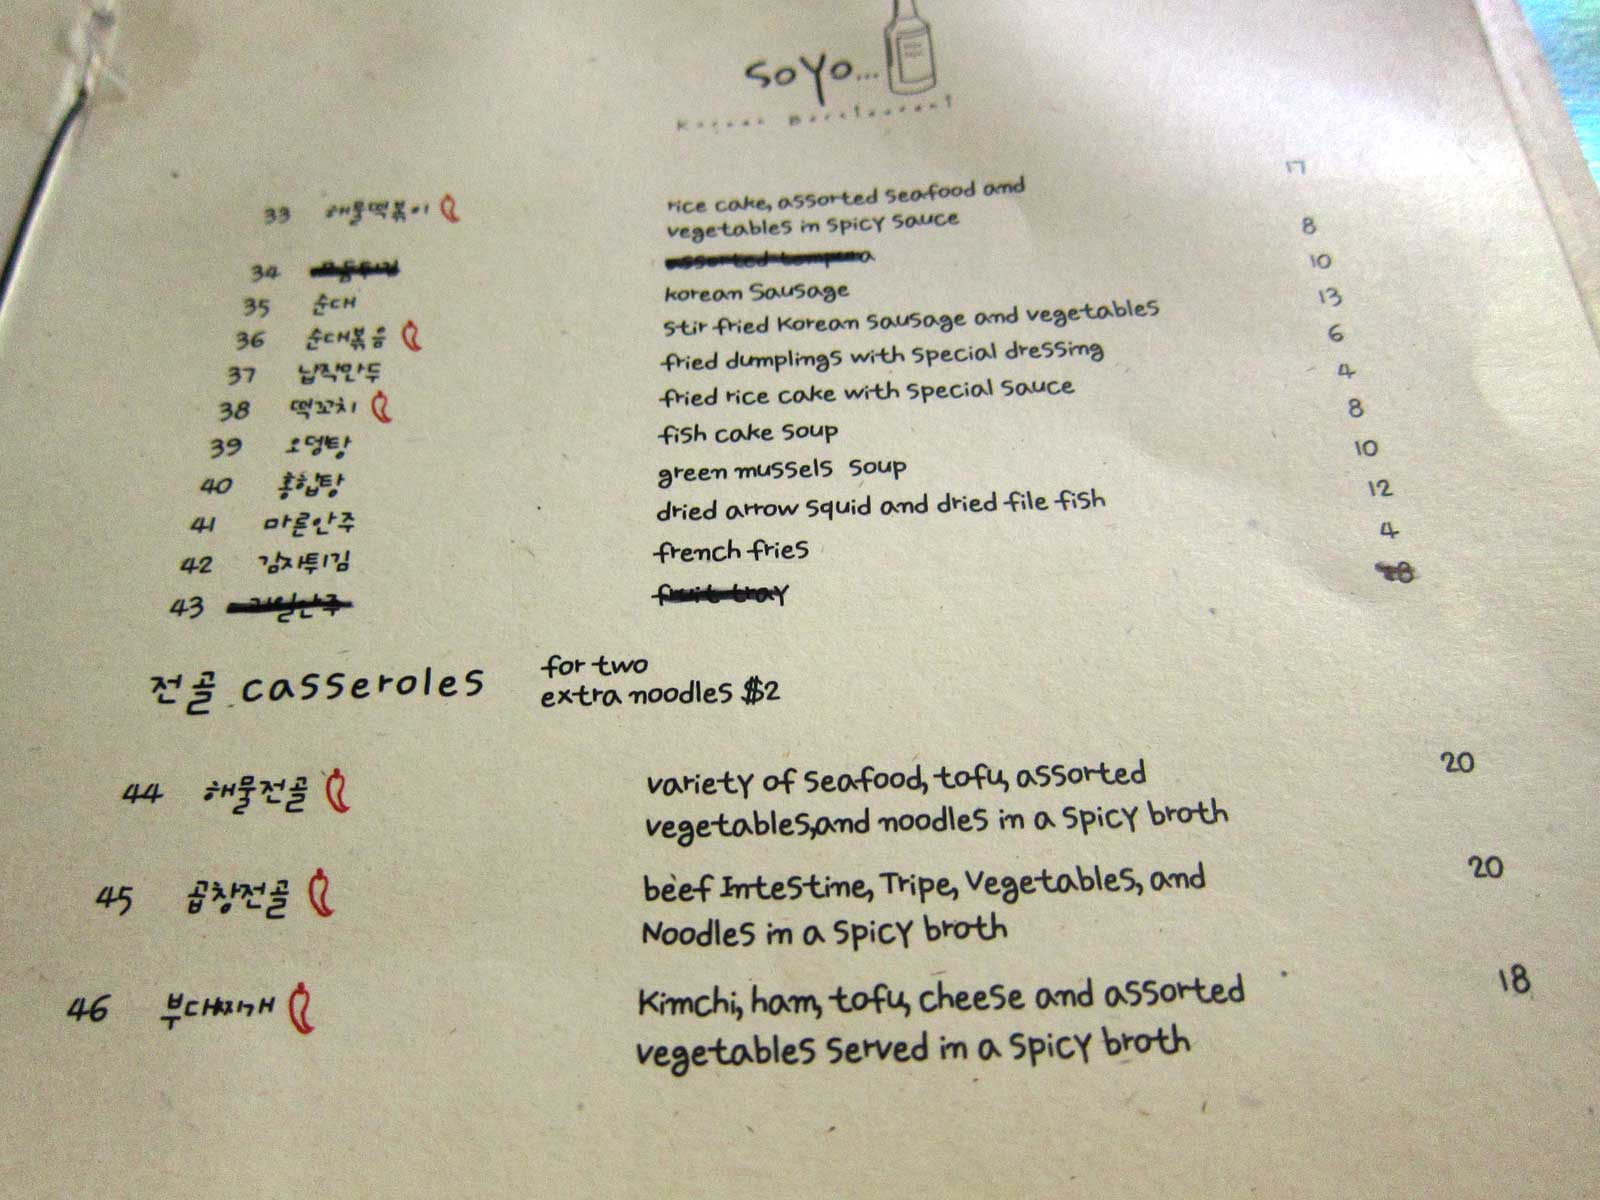 soyo...
Korean Restaurant
33 해물떡볶이 rice cake, assorted seafood and 17
vegetables in spicy sauce
34 모듬튀김 assorted tempura 8
35 순대 korean sausage 10
36 순대볶음 stir fried korean sausage and vegetables 13
37 납작만두 fried dumplings with special dressing 6
38 떡꼬치 fried rice cake with special sauce 4
39 오뎅탕 fish cake soup 8
40 홍합탕 green mussels soup 10
41 마른안주 dried arrow squid and dried file fish 12
42 감자튀김 french fries 4
43 과일안주 fruit tray
전골 casseroles for two
extra noodles $2
44 해물전골 variety of seafood, tofu, assorted 20
vegetables,and noodles in a spicy broth
45 곱창전골 beef Intestine, Tripe, Vegetables, and 20
Noodles in a spicy broth
46 부대찌개 Kimchi, ham, tofu, cheese and assorted 18
vegetables served in a spicy broth